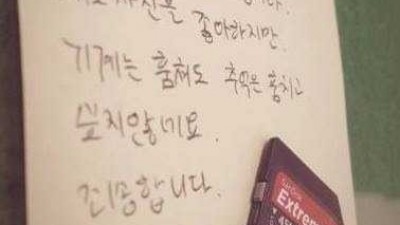 사진을 좋아하지만.
기계는 훔쳐도 추억은 훔치고
싶지않네요.
죄송합니다.
SanDisk
Extrem
45